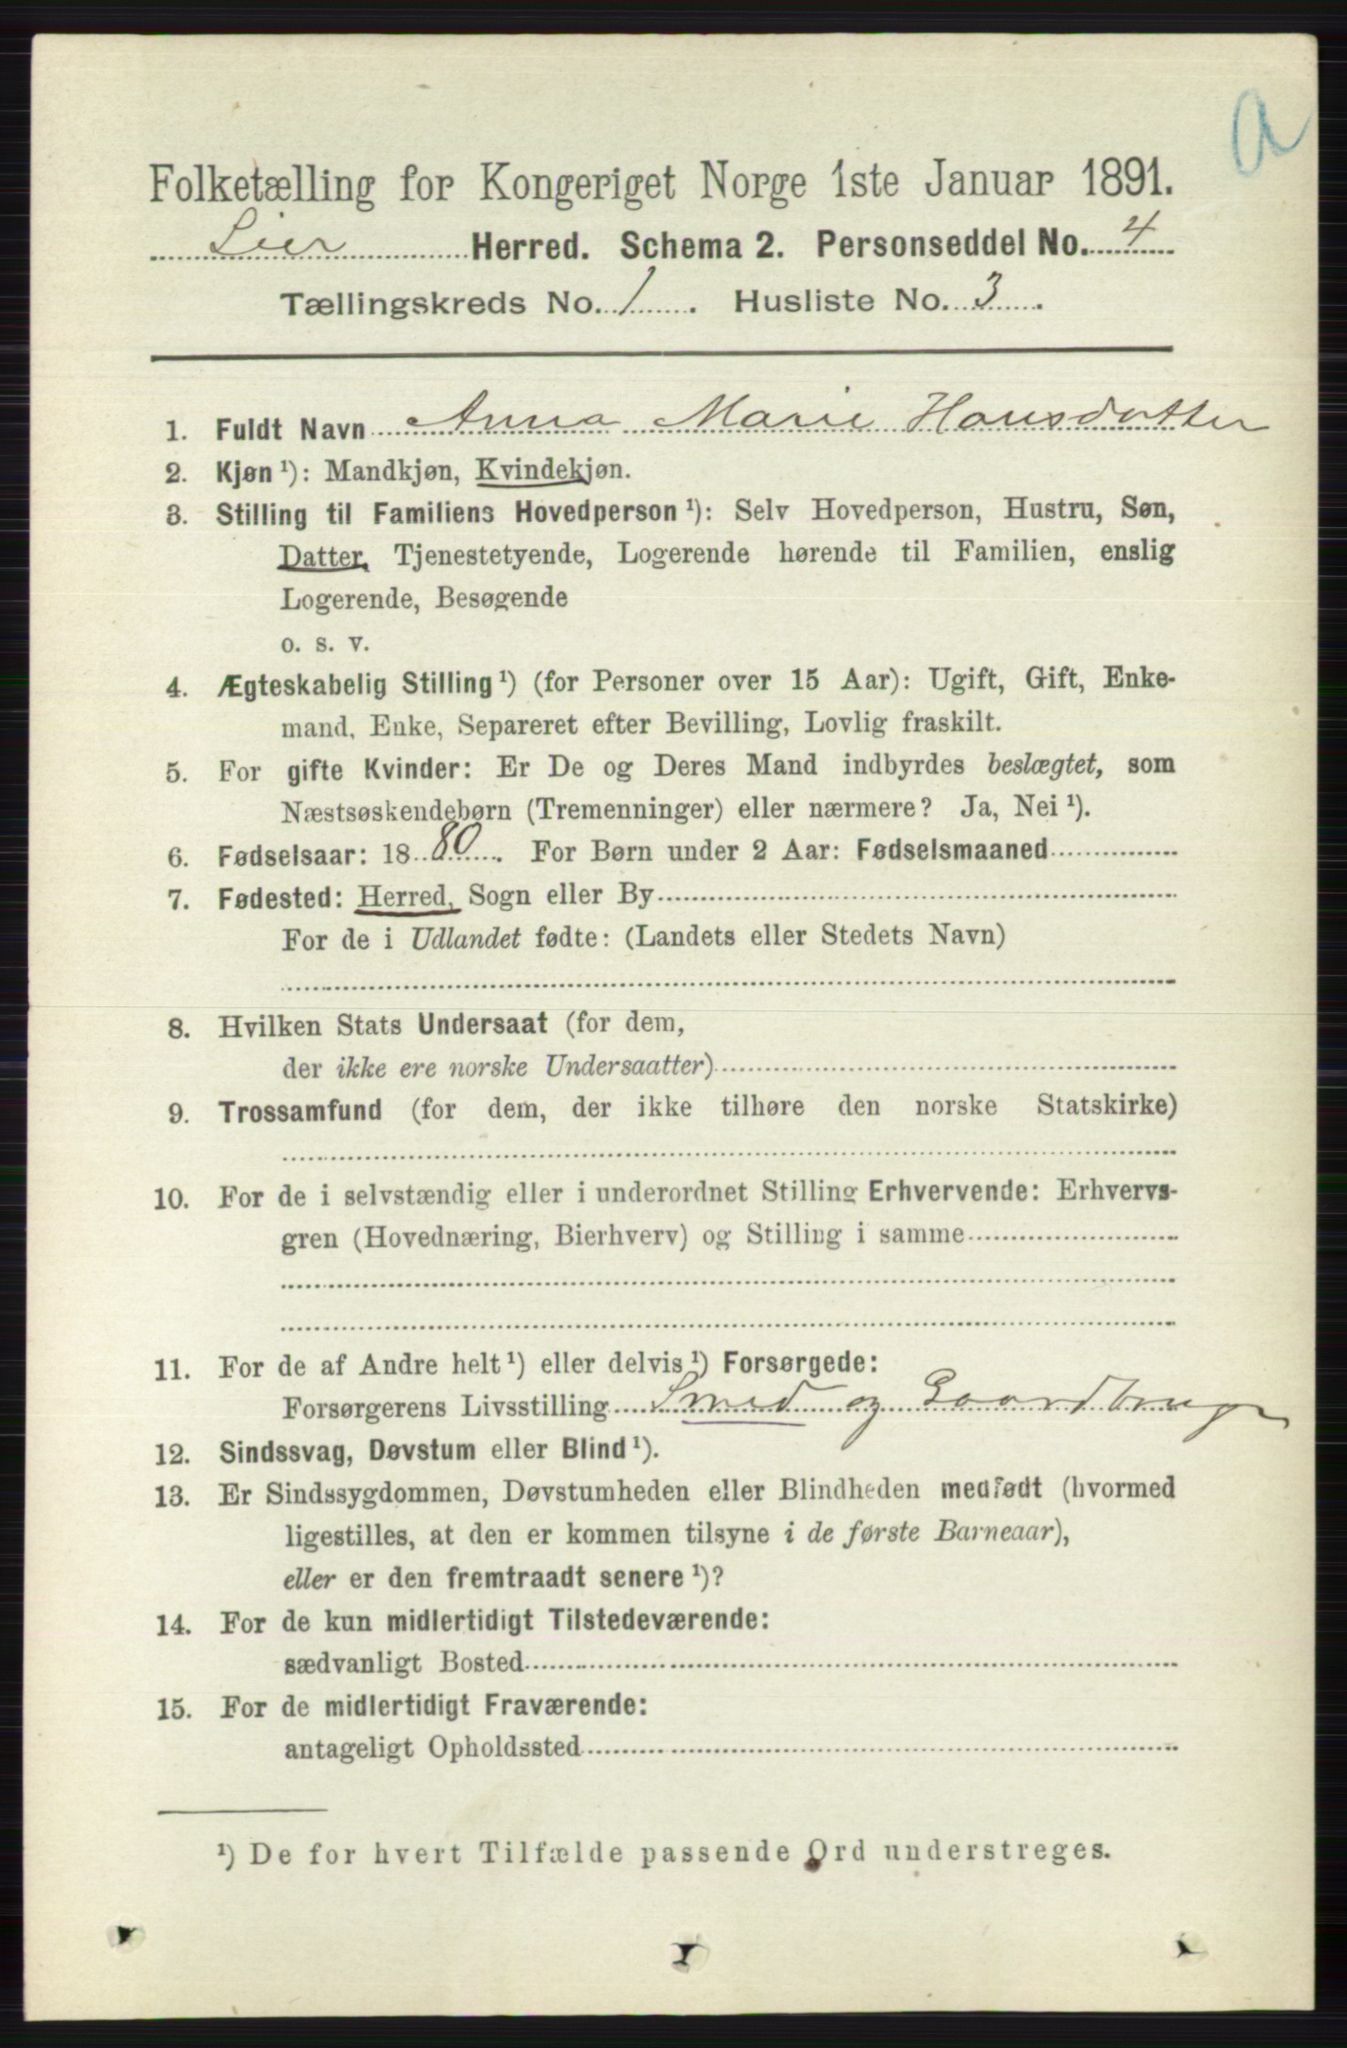 a
Folketælling for Kongeriget Norge 1ste Januar 1891.
Lier Herred. Schema 2. Personseddel No. 4
Tællingskreds No. 1. Husliste No. 3.
1. Fuldt Navn Anna Marie Hansdatter
2. Kjøn ¹): Mandkjøn, Kvindekjøn.
3. Stilling til Familiens Hovedperson ¹): Selv Hovedperson, Hustru, Søn,
Datter, Tjenestetyende, Logerende hørende til Familien, enslig
Logerende, Besøgende
o. s. v.
4. Ægteskabelig Stilling ¹) (for Personer over 15 Aar): Ugift, Gift, Enke-
mand, Enke, Separeret efter Bevilling, Lovlig fraskilt.
5. For gifte Kvinder: Er De og Deres Mand indbyrdes beslægtet, som
Næstsøskendebørn (Tremenninger) eller nærmere? Ja, Nei ¹).
6. Fødselsaar: 1880. For Børn under 2 Aar: Fødselsmaaned
7. Fødested: Herred, Sogn eller By
For de i Udlandet fødte: (Landets eller Stedets Navn)
8. Hvilken Stats Undersaat (for dem,
der ikke ere norske Undersaatter)
9. Trossamfund (for dem, der ikke tilhøre den norske Statskirke)
10. For de i selvstændig eller i underordnet Stilling Erhvervende: Erhvervs-
gren (Hovednæring, Bierhverv) og Stilling i samme
11. For de af Andre helt ¹) eller delvis ¹) Forsørgede:
Forsørgerens Livsstilling Smed og Gaardbruger
12. Sindssvag, Døvstum eller Blind ¹).
13. Er Sindssygdommen, Døvstumheden eller Blindheden medfødt (hvormed
ligestilles, at den er kommen tilsyne i de første Barneaar),
eller er den fremtraadt senere ¹)?
14. For de kun midlertidigt Tilstedeværende:
sædvanligt Bosted
15. For de midlertidigt Fraværende:
antageligt Opholdssted
¹) De for hvert Tilfælde passende Ord understreges.